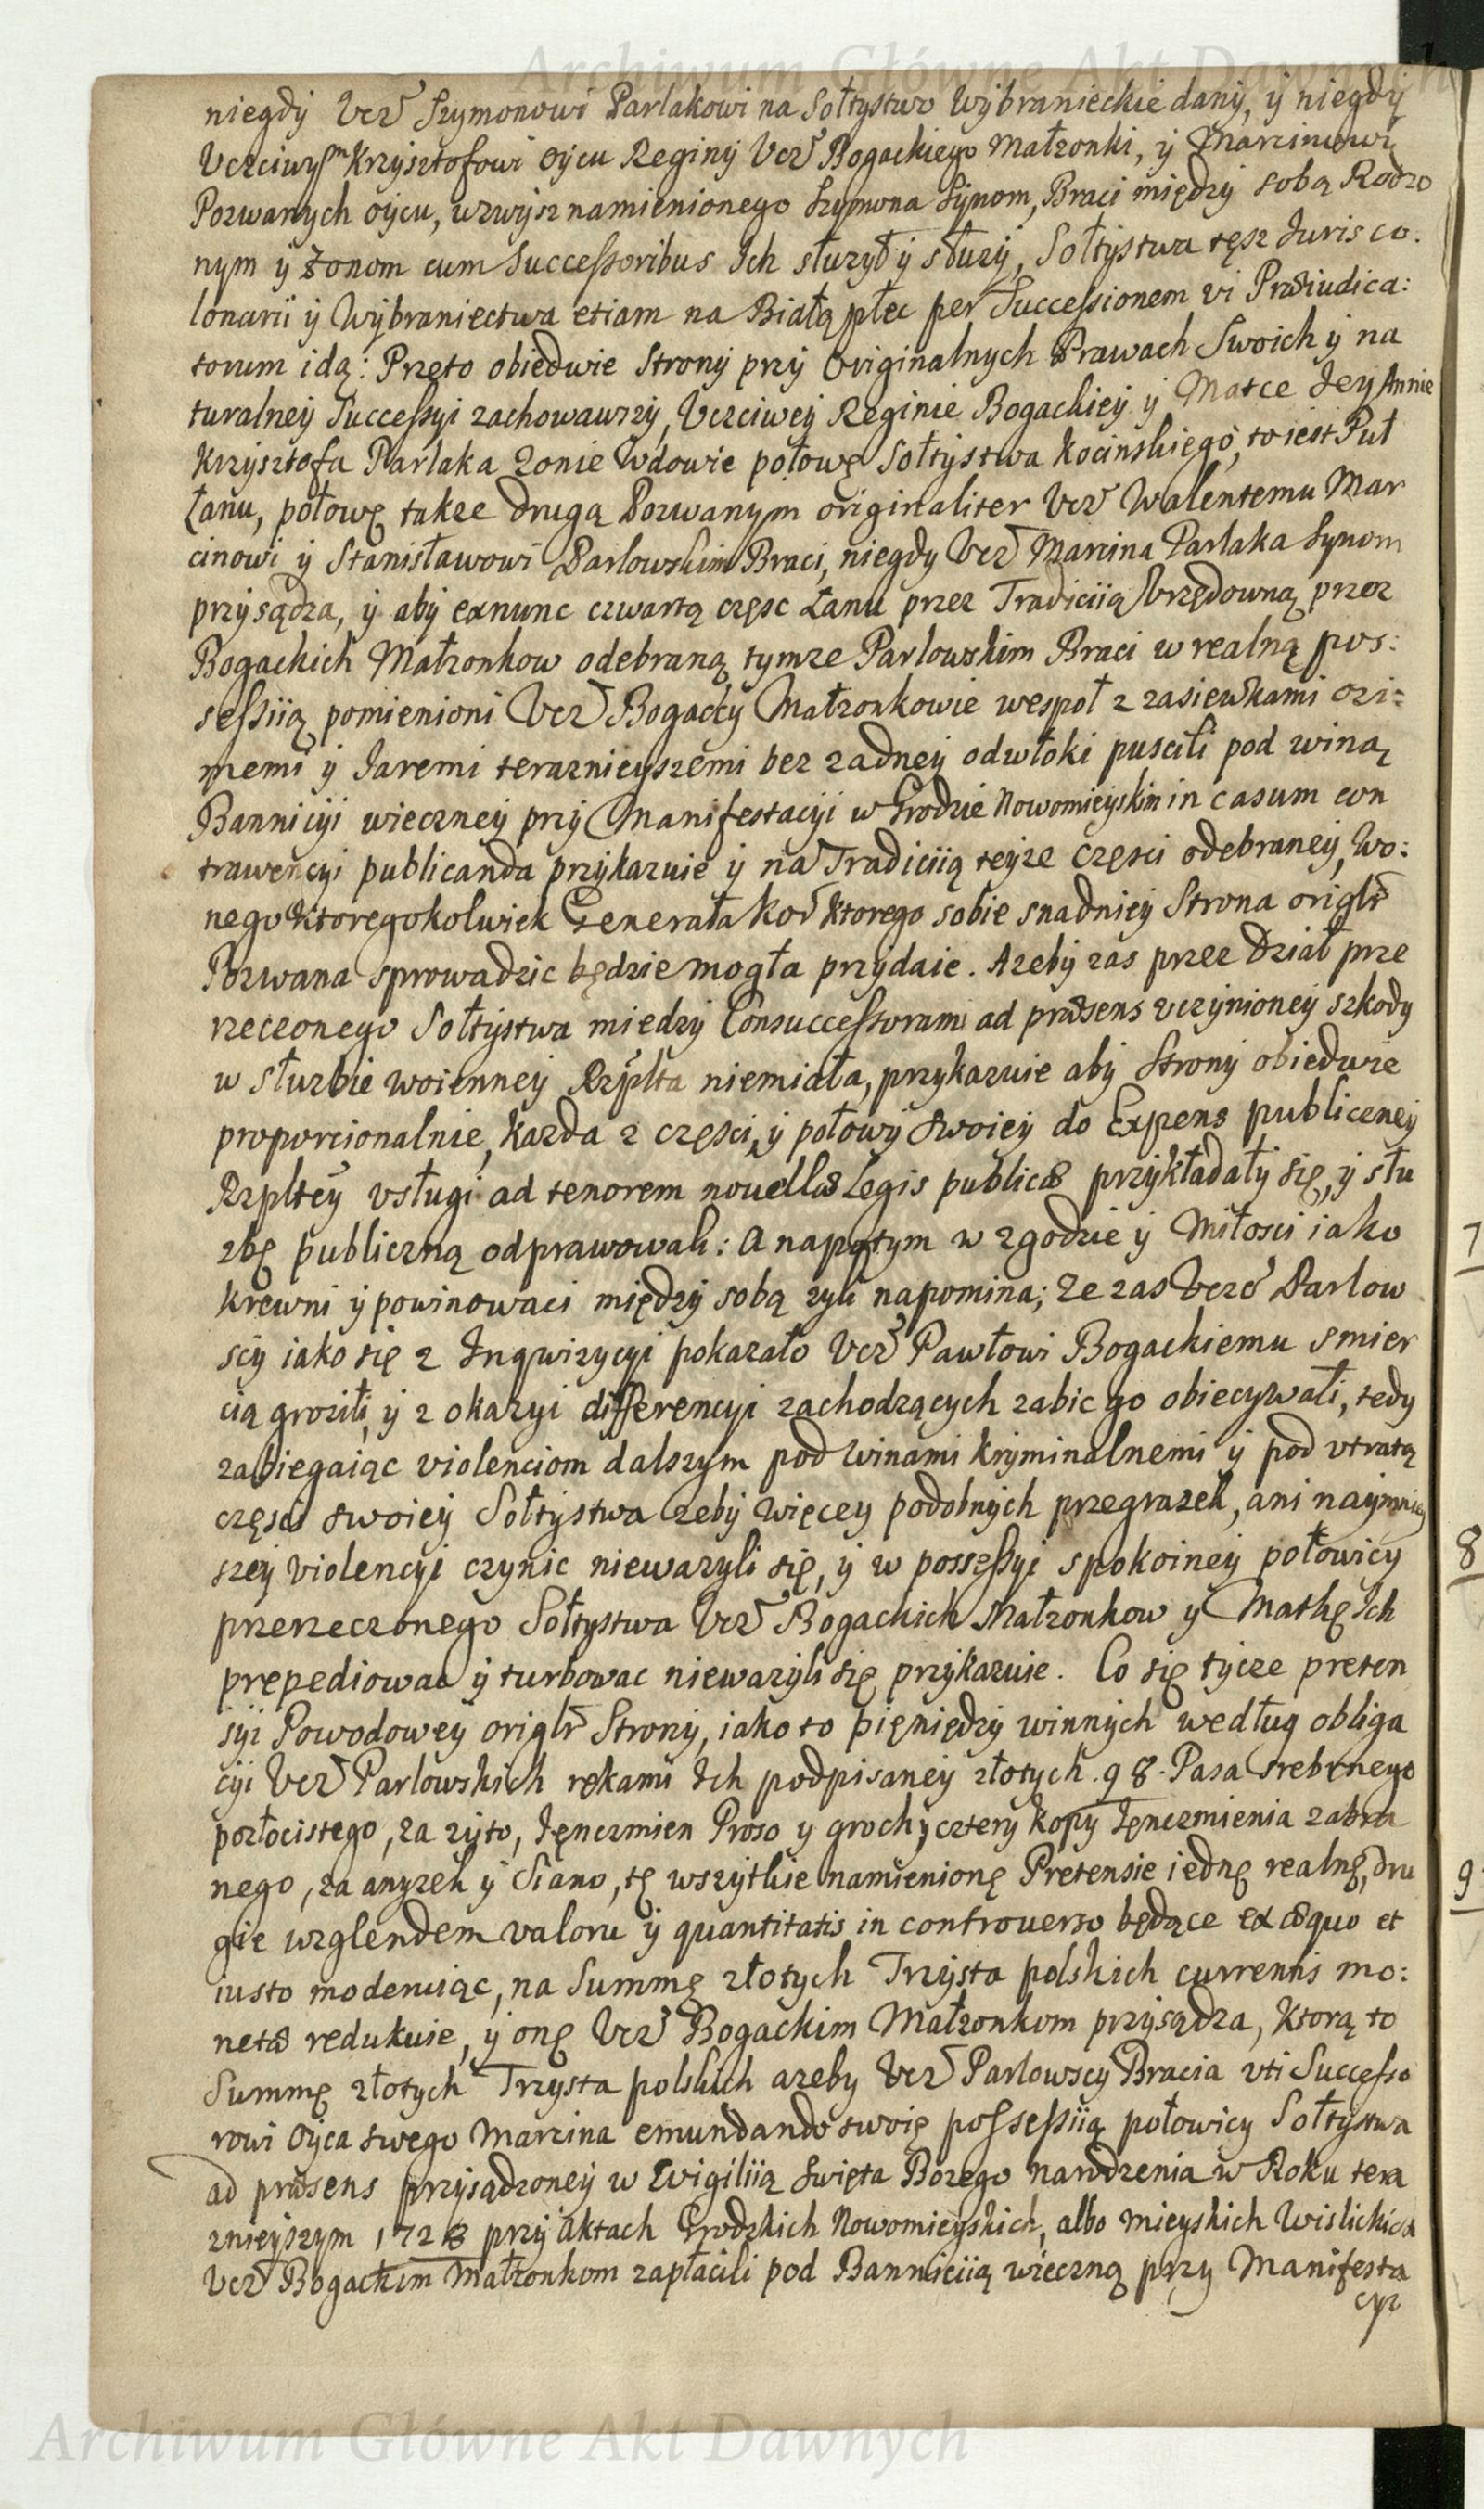 Archiwum Główne Akt Dawnych
niegdÿ Vcz Szymonowi Parlakowi na Sołtystwo Wÿbranieckie danÿ, ÿ niegdÿ
Vcziwym Krzÿsztofowi Oÿcu Reginÿ Vcz Bogackiego Małzonki, ÿ Marcinowi
Pozwanych oÿcu, wzwÿsz namienionego Szymona Sÿnom, Braci międzÿ sobą Rodzo
nym ÿ Zonom cum Successoribus Ich słuzył ÿ słuzÿ, Sołtÿstwa tęsz Iuris co.
lonarii ÿ Wÿbraniectwa etiam na Białą płec per Successionem vi Præiudica:
torum idą: Pręto obiedwie Stronÿ przÿ Originalnych Prawach Swoich ÿ na
turalneÿ Successyi zachowawszÿ, Vcziweÿ Reginie Bogackieÿ ÿ Matce Iey Annie
Krzÿsztofa Parlaka Zonie Wdowie połowę Sołtÿstwa Kocinskiego, to iest Puł
Łanu, połowę takze drugą Pozwanym originaliter Vcz Walentemu Mar
cinowi ÿ Stanisławowi Parlowskim Braci, niegdy Vcz Marcina Parlaka Synom
przÿsądza, ÿ abÿ exnunc czwartą częsc Łanu przez Tradiciią Vrzędowną przez
Bogackich Małzonkow odebraną tymze Parlowskim Braci w realną pos:
sessiią pomienioni Vcz Bogaccy Małzonkowie wespoł z zasiewkami ozi=
memi ÿ Iaremi teraznieyszemi bez zadneÿ odwłoki puscili pod winą
Bannicÿi wieczneÿ przÿ Manifestacÿi w Grodzie Nowomieÿskim in casum con
trawencyi publicanda przÿkazuie ÿ na Tradiciią teÿze częsci odebraneÿ, Wo:
nego ktoregokolwiek Generała Kor ktorego sobie snadnieÿ Strona origlr
Pozwana sprowadzic będzie mogła przÿdaie. Azebÿ zas przez Dział prze
rzeczonego Sołtÿstwa miedzÿ Consuccessorami ad præsens vczÿnioneÿ szkodÿ
w słuzbie woienneÿ Rzplta niemiała, przykazuie abÿ Stronÿ obiedwie
proporcionalnie, kazda z częsci, ÿ połowÿ swoieÿ do Expens publiczneÿ
Rzplteÿ vsługi ad tenorem nouellæ Legis publicæ przÿkładałÿ się, ÿ słu
zbę publiczną odprawowali: A napotym w zgodzie ÿ Miłosci iako
krewni ÿ powinowaci międzÿ sobą zyli napomina; Ze zas Vczc Parlow
scÿ iako się z Inqwizycyi pokazało Vcz Pawłowi Bogackiemu smier
cią grozili, ÿ z okazyi differencyi zachodzących zabic go obiecywali, tedy
zabiegaiąc violenciom dalszym pod winami krÿminalnemi ÿ pod vtratą
częsci swoieÿ Sołtÿstwa zebÿ więcey podobnÿch przegrazek, ani naymniey
szeÿ violencyi czynic niewazyli się, ÿ w possessyi spokoineÿ połowicÿ
przerzeczonego Sołtystwa Vcz Bogackich Małzonkow ÿ Matkę Ich
prepediowac ÿ turbowac niewazÿli się przÿkazuie. Co się tÿcze preten
sÿi Powodowey origlr Stronÿ, iako to pięniędzÿ winnÿch według obliga
cÿi Vcz Parlowskich rękami Ich podpisaneÿ złotych. 98. Pasa srebrnego
pozłocistego, za zÿto, Ięnczmien Proso y groch, y czterÿ kopÿ Ięnczmienia zabra
nego, za anyzek ÿ Siano, tę wszÿtkie namienionę Pretensie iednę realnę, dru
gie wzglendem valoru ÿ quantitatis in controuerso będące ex æquo et
iusto moderuiąc, na Summę złotych Trzysta polskich currentis mo:
netæ redukuie, ÿ onę Vcz Bogackim Małzonkom przÿsądza, ktorą to
Summę złotych Trzysta polskich azeby Vcz Parlowscy Bracia vti Successo
rowi Oÿca swego Marcina emundando swoię possessiią połowicy Sołtystwa
ad præsens przÿsądzoneÿ w Wigiliią Swięta Bozego narodzenia w Roku tera
znieÿszym 1728 przÿ Aktach Grodzkich Nowomieÿskich, albo mieyskich Wislickich
Vcz Bogackim Małzonkom zapłacili pod Banniciią wieczną przy Manifesta
cyi
7
8
9
Archiwum Główne Akt Dawnych